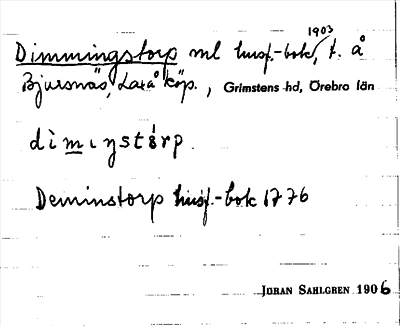 1903
Dimmingstorp ml husf.-bok, t. å
Bjursnäs, Laxå köp., Grimstens hd, Örebro län
dìmıŋstórp.
Deminstorp husf.-bok 1776
JÖRAN SAHLGREN 1906